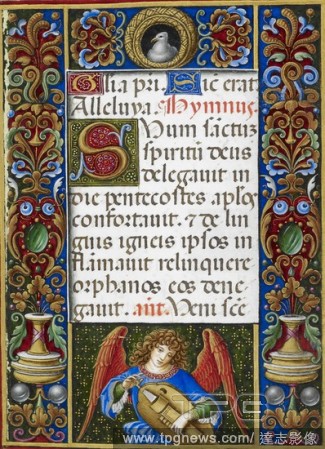 Glia pri. Sic erat.
Alleluya. Hymnus
SVum sanctũ
spiritũ deus
delegauit in
die pentecostes aplos
confortauit. ⁊ de lin
guis igneis ipsos in
flamauit relinquere
orphanos eos dene
gauit. ant. Veni scẽ
TPG
www.tpgnews.com/ 達志影像